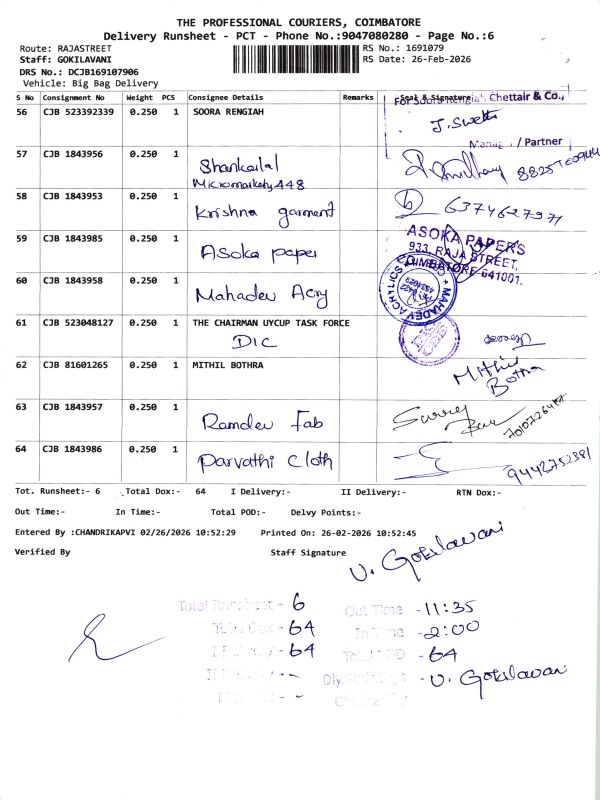 THE PROFESSIONAL COURIERS, COIMBATORE
Delivery Runsheet - PCT - Phone No.:9047080280 - Page No.:6
Route: RAJASTREET
RS No.: 1691079
Staff: GOKILAVANI
RS Date: 26-Feb-2026
DRS No.: DCJB169107906
Vehicle: Big Bag Delivery
S No Consignment No Weight PCS Consignee Details Remarks Seal & Signature
For Soora Rengiah Chettair & Co.,
56 CJB 523392339 0.250 1 SOORA RENGIAH
J. Swetha
Manager / Partner
57 CJB 1843956 0.250 1 Shankarlal
Micromarkety 448
58 CJB 1843953 0.250 1 Krishna garment 6374627971
59 CJB 1843985 0.250 1 Asoka paper
ASOKA PAPERS
933, RAJA STREET,
COIMBATORE-641001.
60 CJB 1843958 0.250 1 Mahadev Acry
MAHADEV ACRYLICS
61 CJB 523048127 0.250 1 THE CHAIRMAN UYCUP TASK FORCE
DIC
62 CJB 81601265 0.250 1 MITHIL BOTHRA
Mithil
Bothra
63 CJB 1843957 0.250 1 Ramdev Fab
64 CJB 1843986 0.250 1 Parvathi Cloth
9442752381
Tot. Runsheet:- 6 Total Dox:- 64 I Delivery:- II Delivery:- RTN Dox:-
Out Time:- In Time:- Total POD:- Delvy Points:-
Entered By :CHANDRIKAPVI 02/26/2026 10:52:29 Printed On: 26-02-2026 10:52:45
Verified By Staff Signature
V. Gokilavani
Total Runsheet - 6 Out Time - 11:35
Total Dox - 64 In Time - 2:00
I Delivery - 64 Total POD - 64
II Delivery - - V. Gokilavani